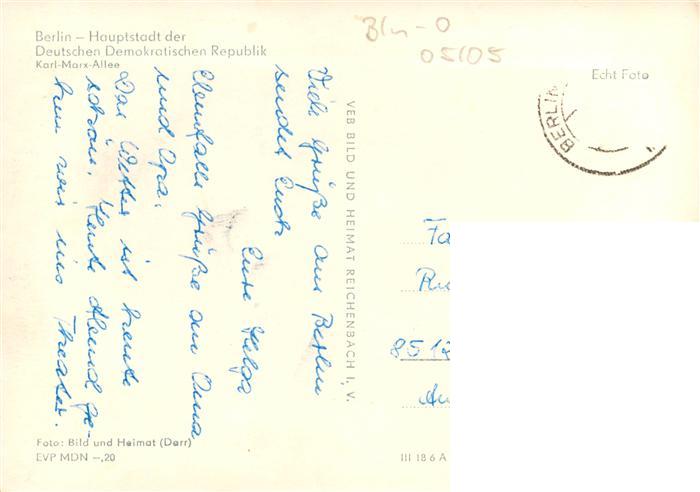 Berlin – Hauptstadt der
Deutschen Demokratischen Republik
Karl-Marx-Allee
Bln-O
05/05
Echt Foto
BERLIN
Viele Grüße aus Berlin
sendet Euch
Eure Helga
Ebenfalls Grüße an Oma
und Opa.
Das Wetter ist heute
schön. Heute Abend ge-
hen wir ins Theater.
VEB BILD UND HEIMAT REICHENBACH I. V.
Fa
8512
Foto: Bild und Heimat (Darr)
EVP MDN –,20
III 18 6 A